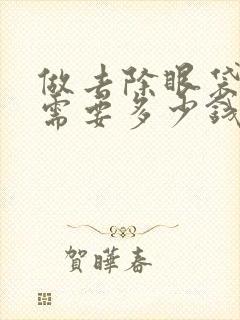 做去除眼袋
需要多少钱
賀曄春